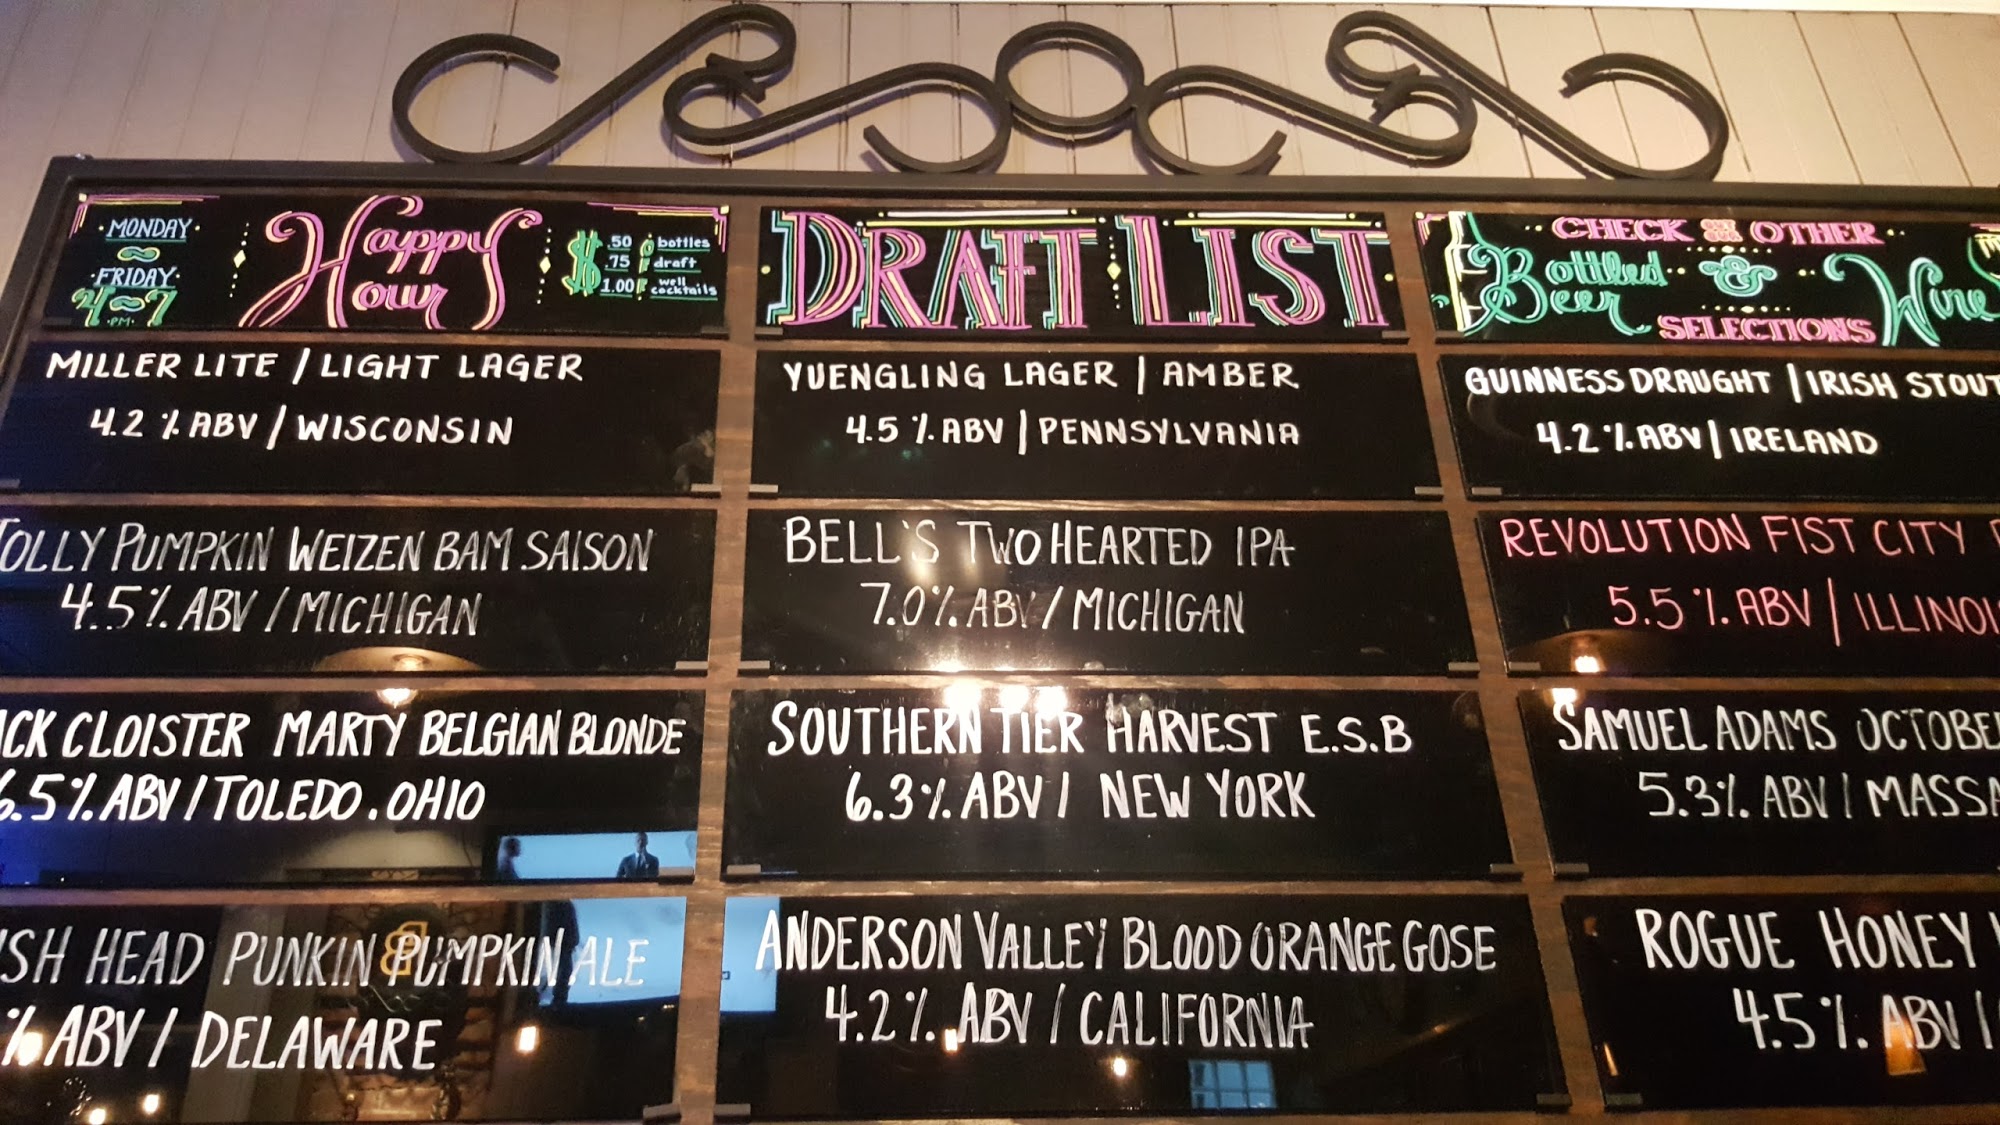 MONDAY
FRIDAY
4~7
PM
Happy
Hour
$ .50 off bottles
.75 off draft
1.00 off well cocktails
DRAFT LIST
CHECK OUR OTHER
Bottled Beer & Wine
SELECTIONS
MILLER LITE / LIGHT LAGER
4.2 % ABV / WISCONSIN
YUENGLING LAGER | AMBER
4.5 % ABV | PENNSYLVANIA
GUINNESS DRAUGHT | IRISH STOUT
4.2 % ABV | IRELAND
JOLLY PUMPKIN WEIZEN BAM SAISON
4.5% ABV / MICHIGAN
BELL'S TWO HEARTED IPA
7.0% ABV / MICHIGAN
REVOLUTION FIST CITY
5.5 % ABV | ILLINOIS
CLOISTER MARTY BELGIAN BLONDE
6.5% ABV / TOLEDO. OHIO
SOUTHERN TIER HARVEST E.S.B
6.3% ABV / NEW YORK
SAMUEL ADAMS
5.3% ABV /
HEAD PUNKIN PUMPKIN ALE
% ABV / DELAWARE
ANDERSON VALLEY BLOOD ORANGE GOSE
4.2% ABV / CALIFORNIA
ROGUE HONEY
4.5% ABV /